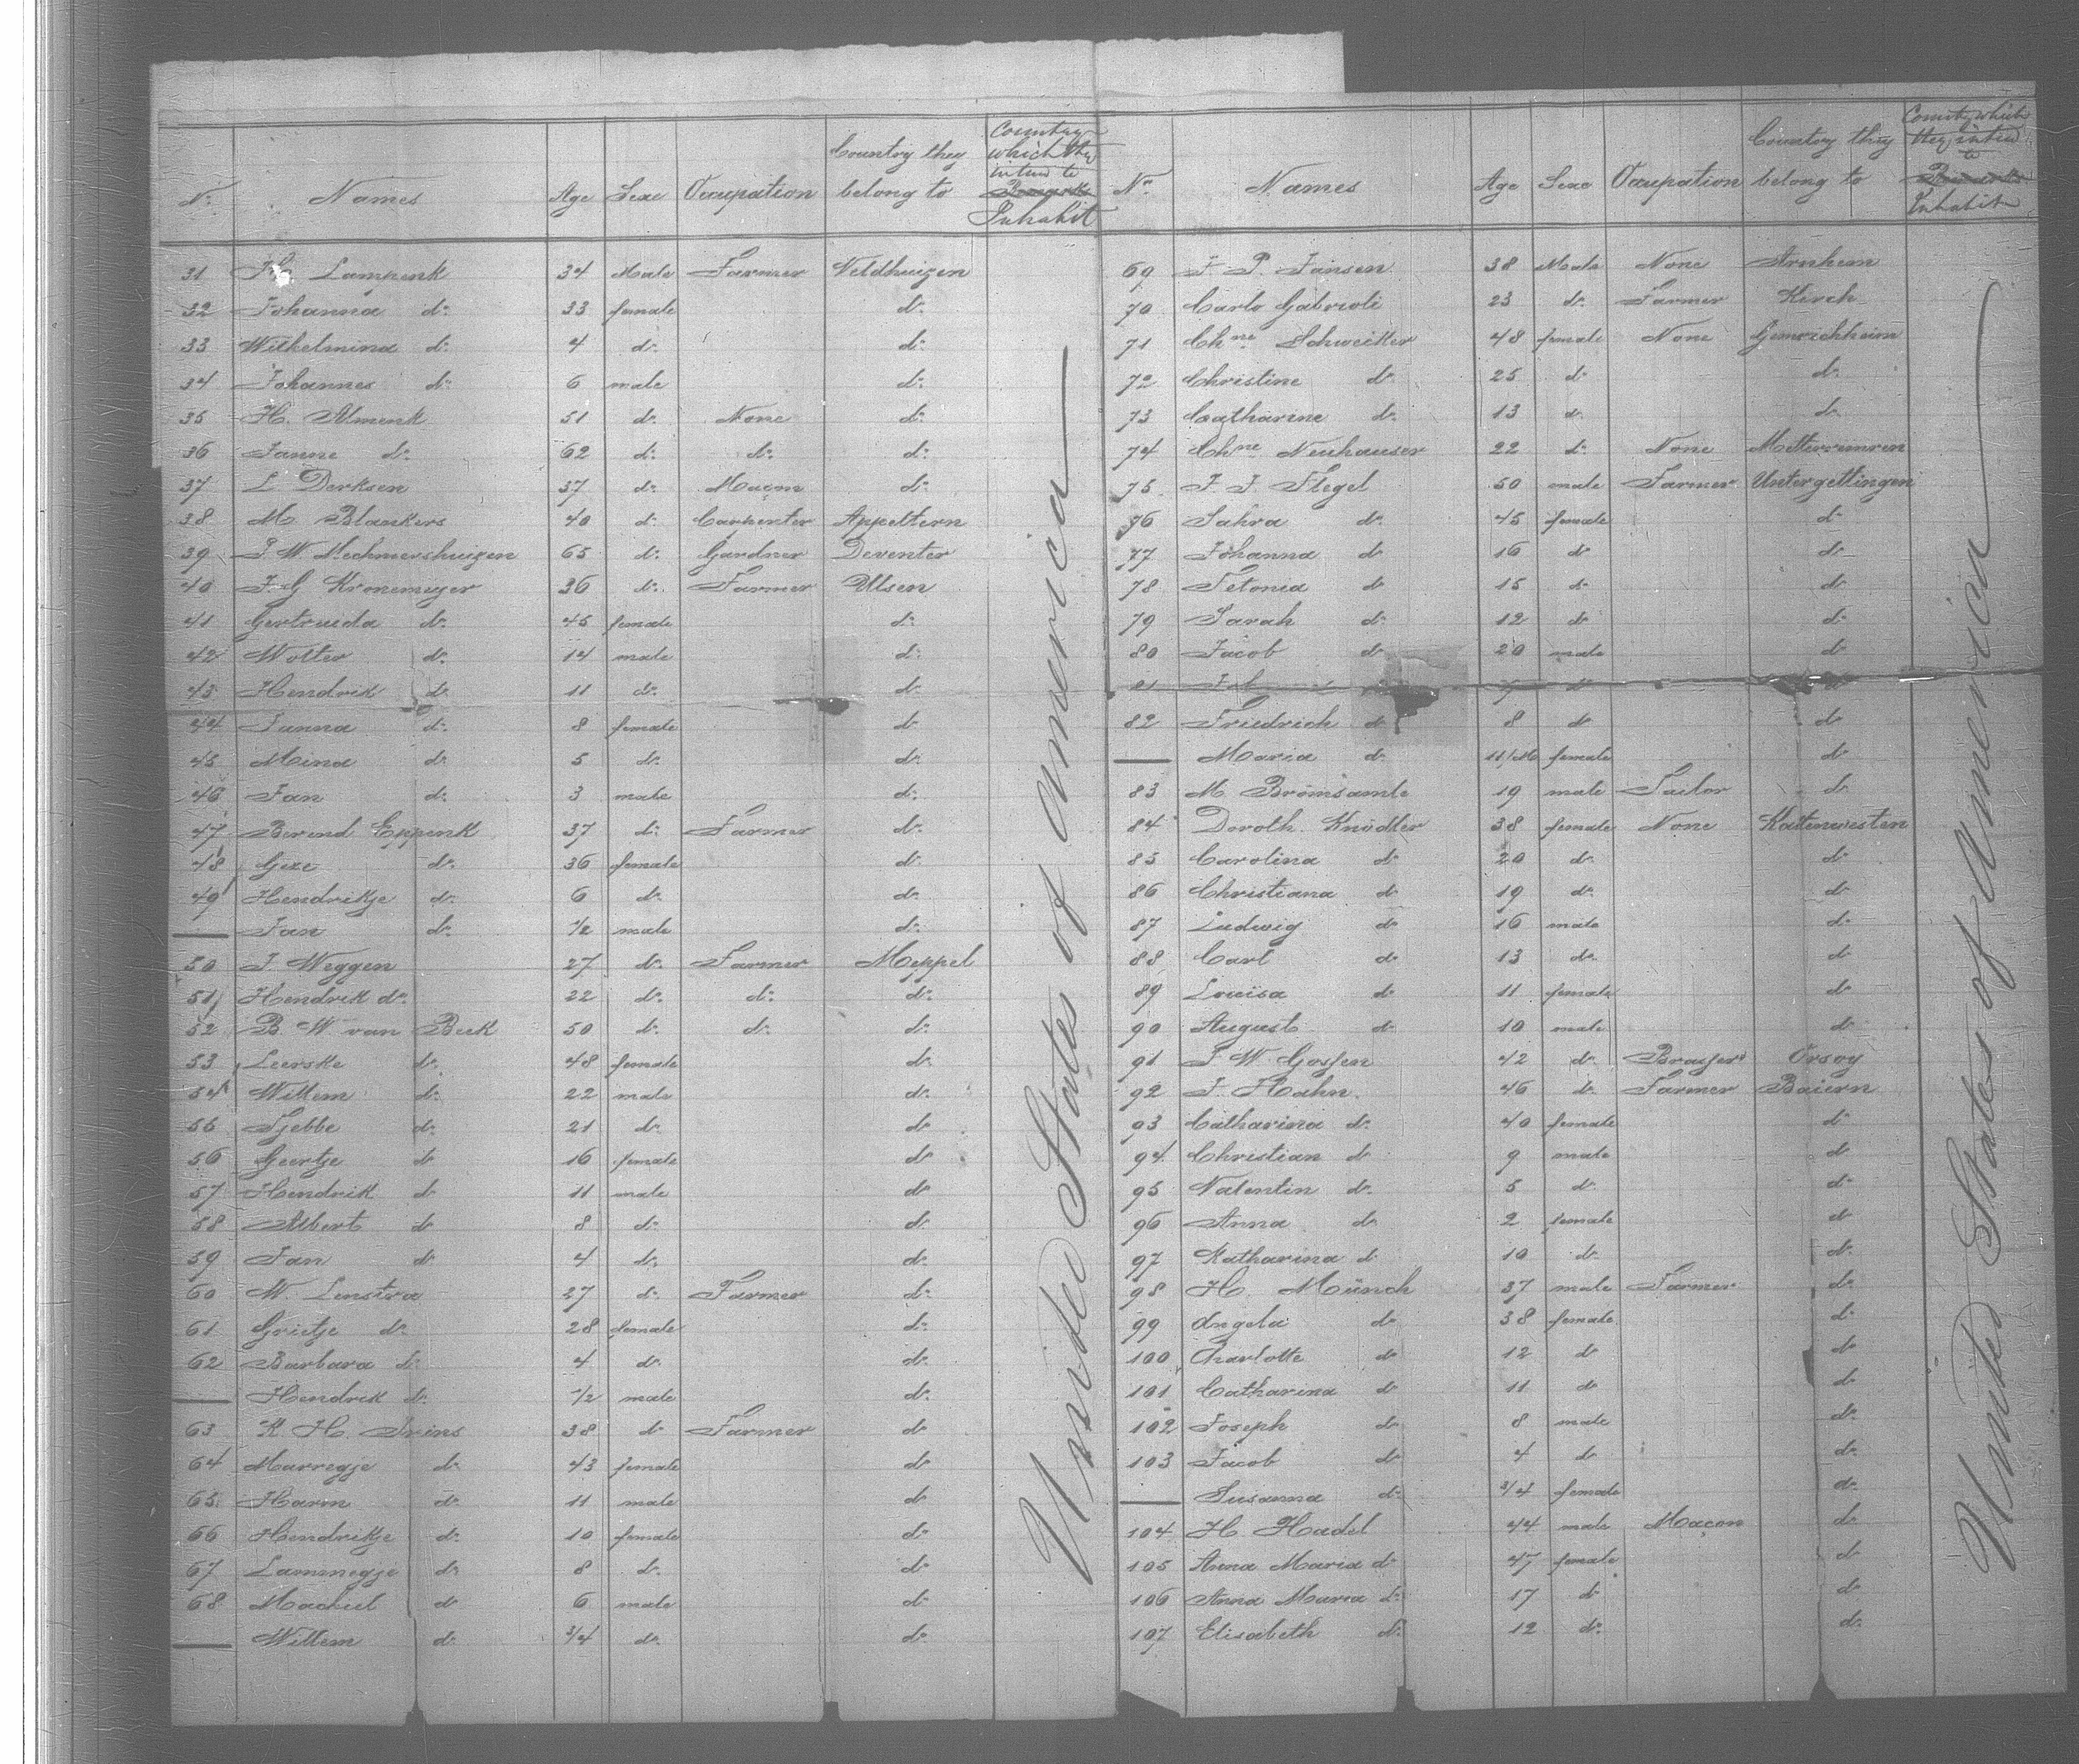 No. Names Age Sexe Occupation Country they belong to Country which they intend to Remarks Inhabit
31 H. Lampenk 34 Male Farmer Veldhuizen
32 Johanna do. 33 female do.
33 Wilhelmina do. 4 do. do.
34 Johannes do. 6 male do.
35 H. Almenk 51 do. None do.
36 Janne do. 62 do. do. do.
37 L Derksen 37 do. do.
38 M. Blankers 40 do. Carpenter Appeltern
39 J. W. Mechmershuizen 65 do. Gardner Deventer
40 J. G Kronemeyer 36 do. Farmer Ulsen
41 Gertruida do. 45 female do.
42 Wolter do. 14 male do.
43 Hendrik do. 11 do. do.
44 Janna do. 8 female do.
45 Mina do. 5 do. do.
46 Jan do. 3 male do.
47 Berend Eppink 37 do. Farmer do.
48 Geze do. 36 female do.
49 Hendrikje do. 6 do. do.
— Jan do. 1/2 male do.
50 J. Weggen 27 do. Farmer Meppel
51 Hendrik do. 22 do. do. do.
52 B. W. van Beek 50 do. do. do.
53 Leerske do. 48 female do.
54 Willem do. 22 male do.
55 Tjebbe do. 21 do. do.
56 Geertje do 16 female do
57 Hendrik do 11 male do
58 Albert do 8 do. do.
59 Jan do 4 do. do.
60 W. Lenstra 27 do. Farmer do.
61 Grietje do. 28 female do.
62 Barbara do. 4 do. do.
— Hendrik do. 1/2 male do.
63 K. H. Prins 38 do Farmer do
64 Marregje do. 43 female do
65 Harm do. 11 male do
66 Hendrikje do. 10 female do.
67 Lammegje do. 8 do. do
68 Machiel do 6 male do.
— Willem do. 3/4 do. do
United States of America
No. Names Age Sexe Occupation Country they belong to Country which they intend to Remarks Inhabit
69 F. P. Jansen 38 Male None Arnhem
70 Carlo Gabrioli 23 do. Farmer Kerch
71 Chne. Schweiker 48 female None
72 Christine do. 25 do do.
73 Catharine do. 13 do. do.
74 Chne. Neuhauser 22 do. None
75 J. J. Flegel 50 male Farmer Untergettingen
76 Sahra do. 45 female do
77 Johanna do 16 do do.
78 Fetonia do 15 do do
79 Sarah do. 12 do do.
80 Jacob do 20 male do
81 do do
82 Friedrich do 8 do do
— Maria do. 11/M female do
83 M. Bromsamle 19 male Tailor do.
84 Doroth. Knodler 38 female None Kattenwesten
85 Carolina do 20 do. do.
86 Christiana do 19 do. do
87 Ludwig do 16 male do.
88 Carl do 13 do. do
89 Louisa do 11 female do
90 August do 10 male do
91 J. W. Gossen 42 do. Orsoy
92 J. Hahn. 46 do Farmer Baiern
93 Catharina do. 40 female do
94 Christian do 9 male do
95 Valentin do. 5 do. do.
96 Anna do. 2 female do
97 Katharina do 10 do. do.
98 H. Münch 37 male Farmer do.
99 Angela do 38 female do.
100 Charlotte do 12 do do
101 Catharina do 11 do do
102 Joseph do 8 male do.
103 Jacob do 4 do do.
— Susanna do. 3/4 female do.
104 H. Hadel 44 male Maçon do.
105 Anna Maria do 47 female do
106 Anna Maria do. 17 do do.
107 Elisabeth do. 12 do. do.
United States of America